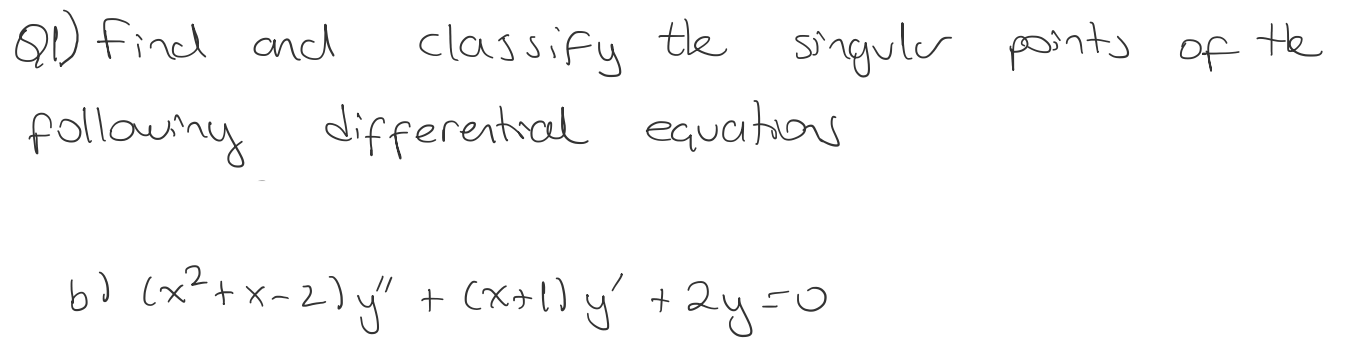 Q1) Find and classify the singular points of the
following differential equations
b) (x²+x-2)y″ + (x+1)y′ + 2y=0